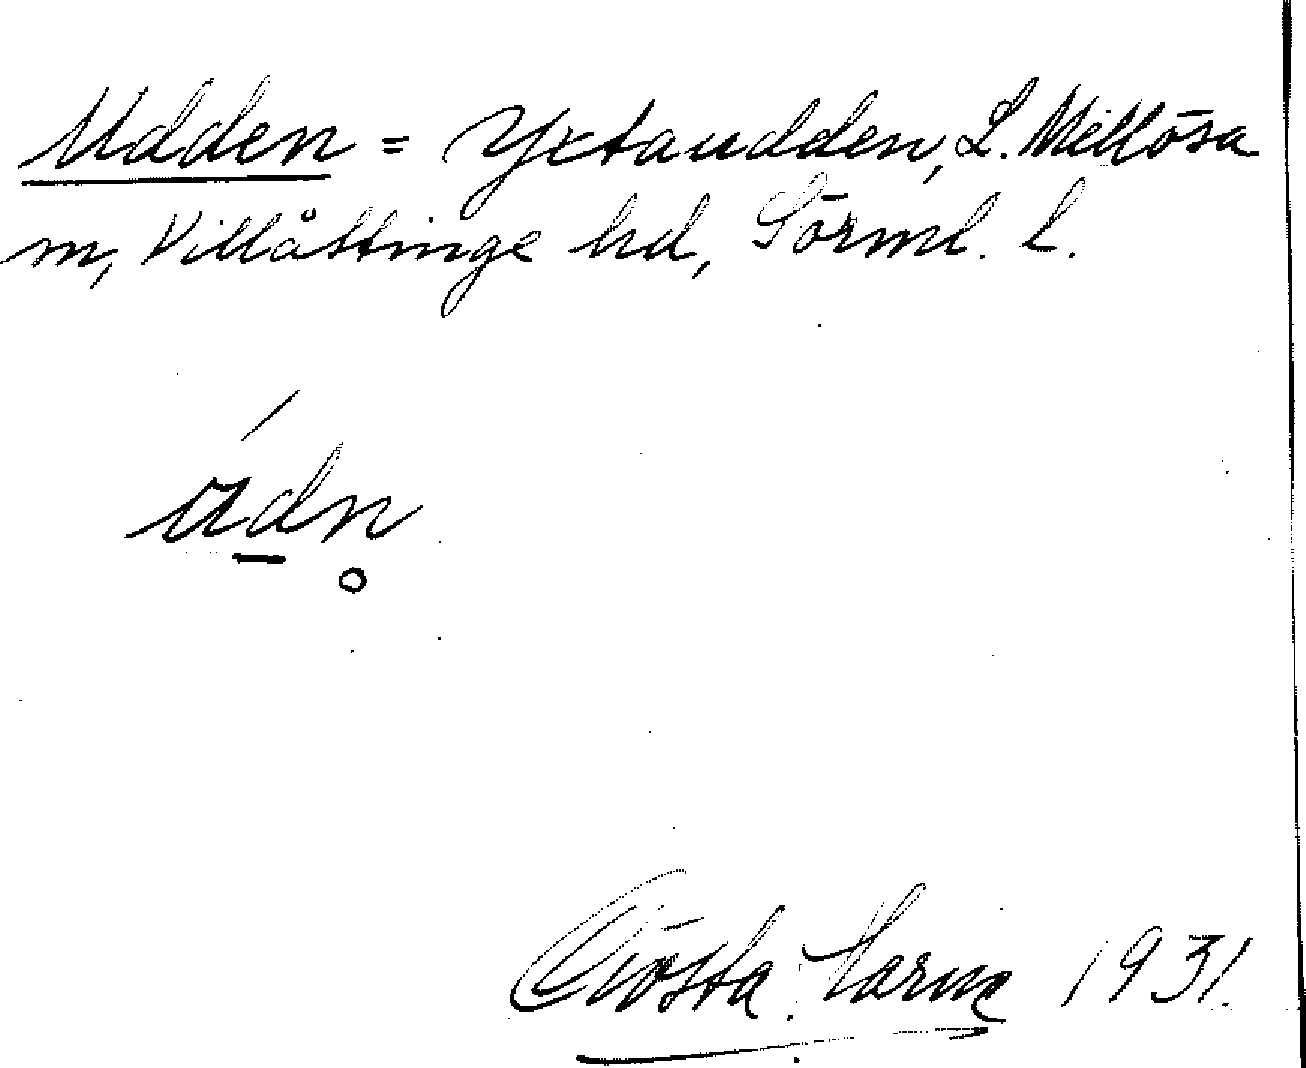 Udden = Yxtaudden, L. Mellösa
m, Villåttinge hd, Sörml. l.
ú̱dn̥
Gösta 1931.